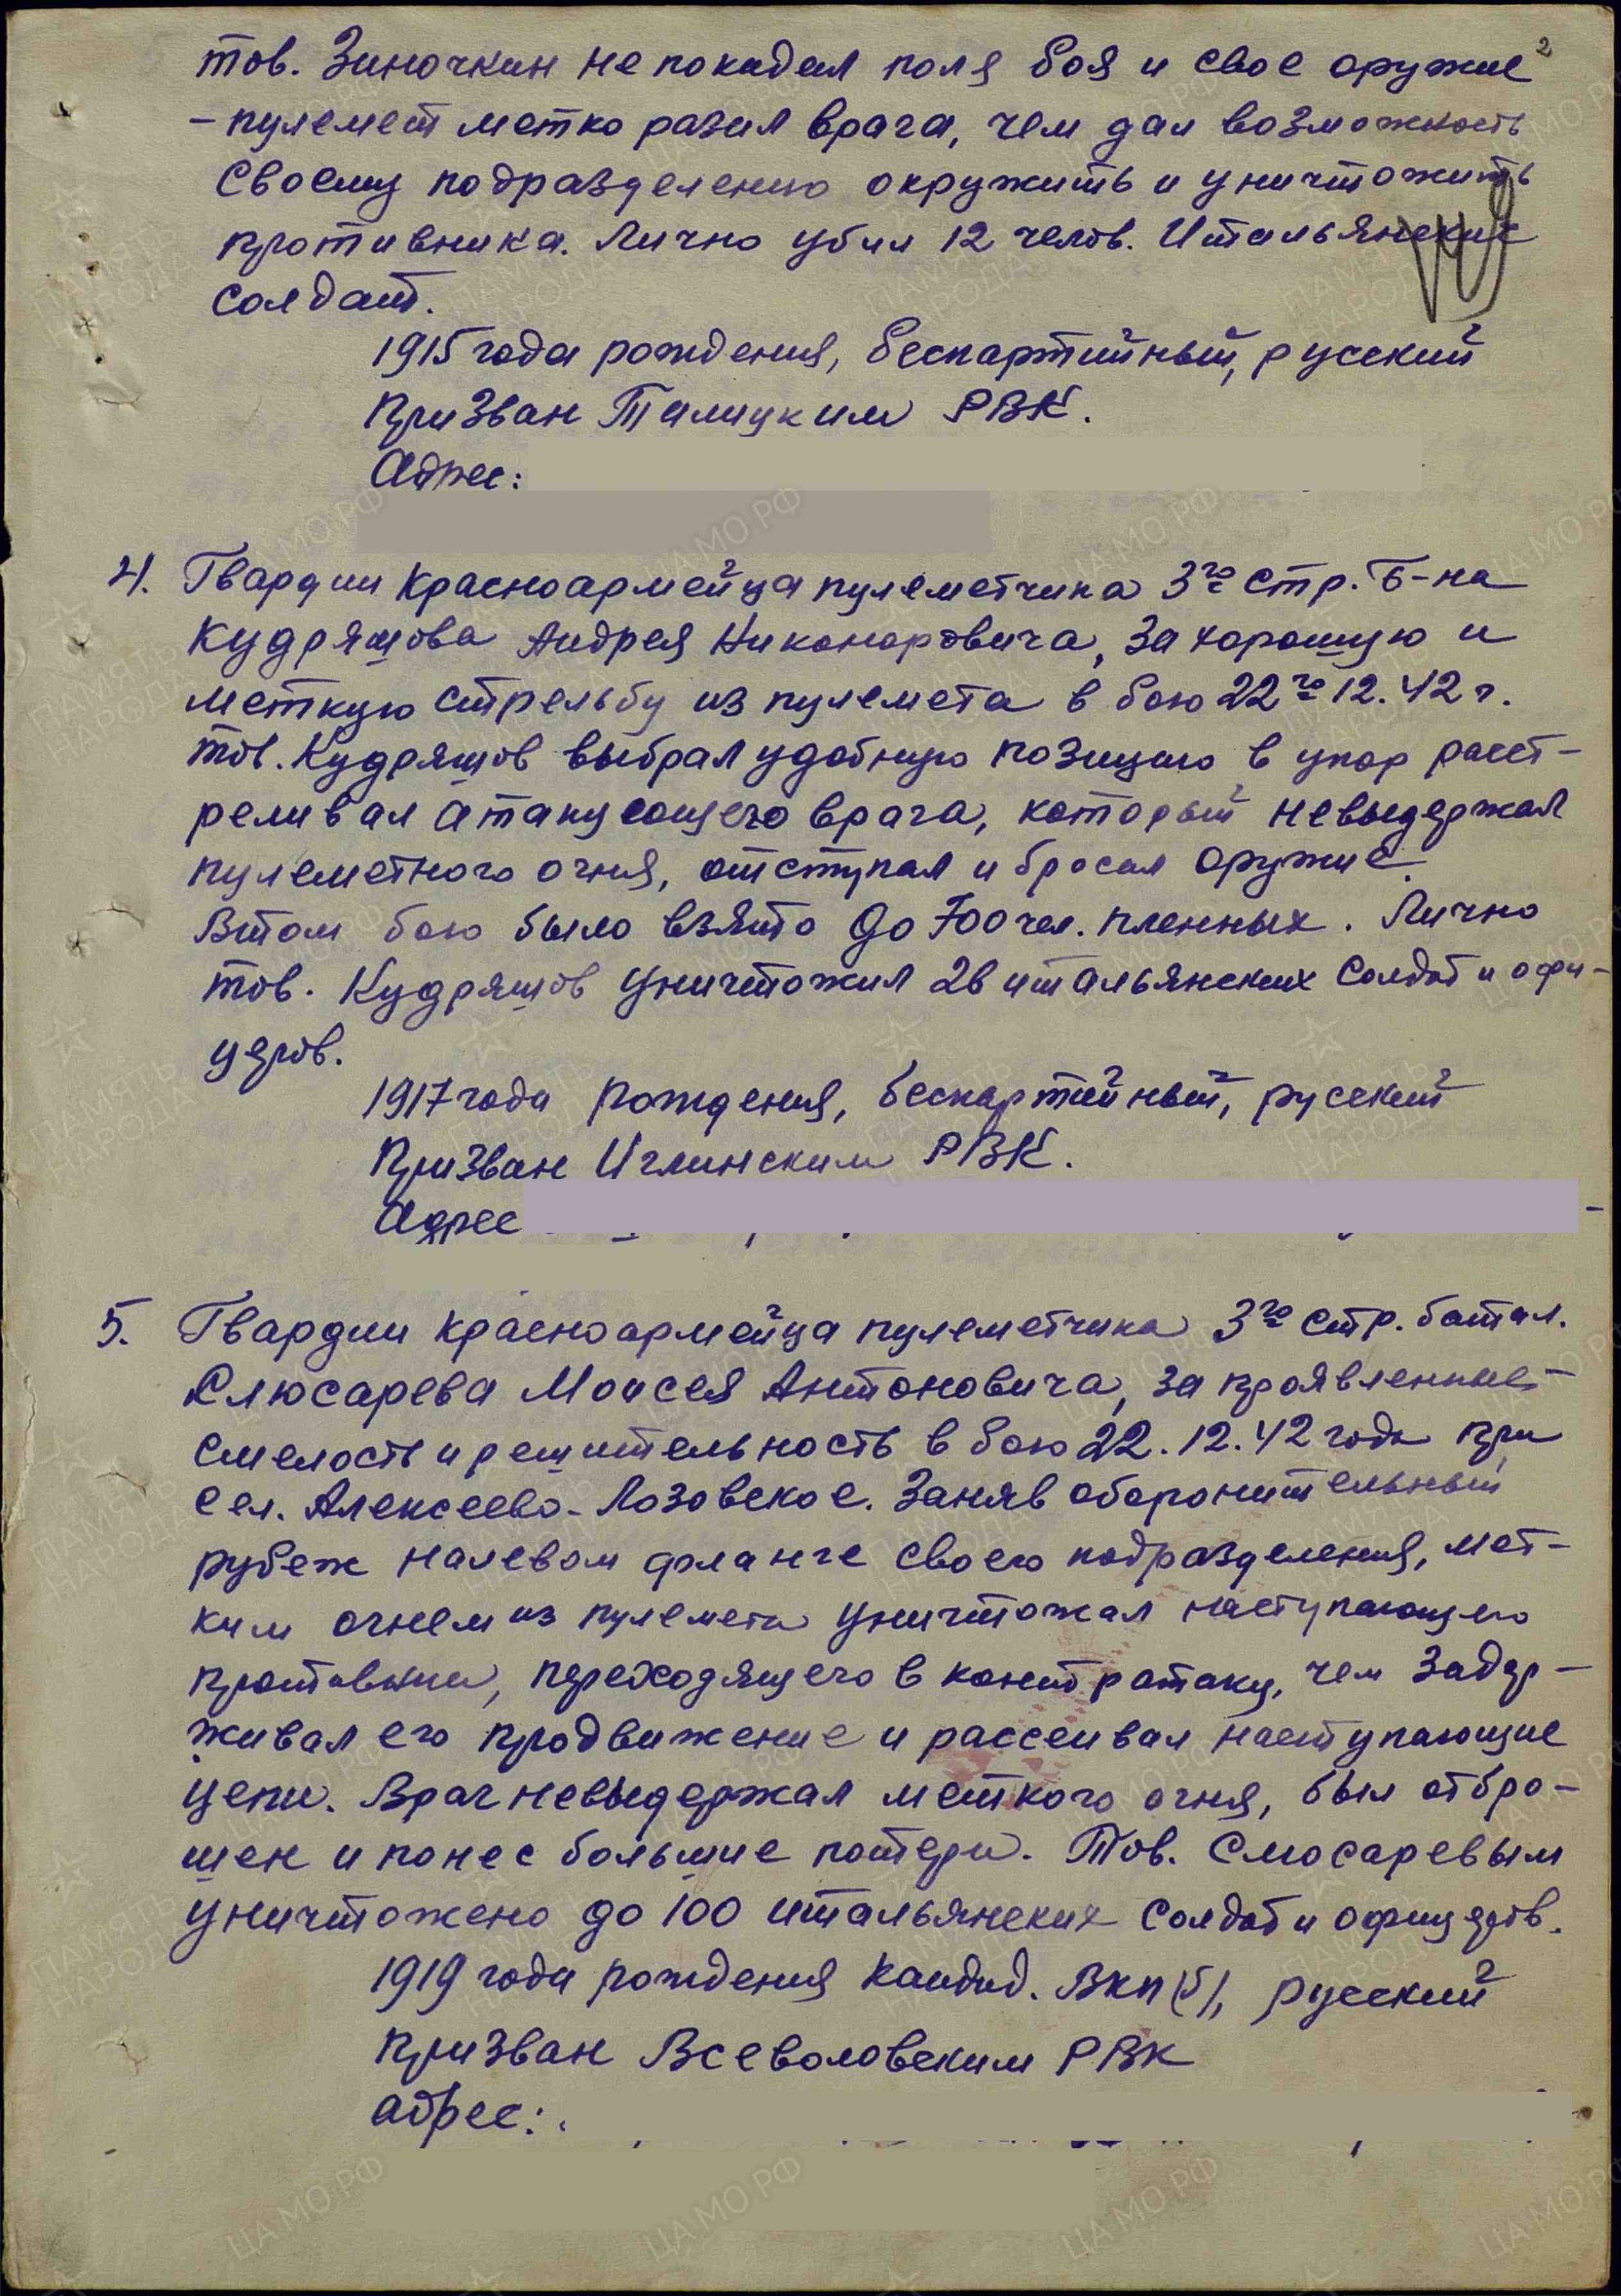 2
тов. Зиночкин не покидал поля боя и свое оружие
- пулемет метко разил врага, чем дал возможность
своему подразделению окружить и уничтожить
противника. Лично убил 12 челов. Итальянских
солдат.
1915 года рождения, беспартийный, русский
Призван Талицким РВК.
Адрес:
4. Гвардии красноармейца пулеметчика 3го стр. б-на
Кудряшова Андрея Никоноровича, за хорошую и
меткую стрельбу из пулемета в бою 22го 12.42 г.
тов. Кудряшов выбрал удобную позицию в упор расст-
реливал атакующего врага, который невыдержал
пулеметного огня, отступал и бросал оружие.
Втом бою было взято до 700 чел. пленных. Лично
тов. Кудряшов уничтожил 26 итальянских солдат и офи-
церов.
1917 года рождения, беспартийный, русский
Призван Иглинским РВК.
Адрес
5. Гвардии красноармейца пулеметчика 3го стр. батал.
Слюсарева Моисея Антоновича, за проявленные
смелость и решительность в бою 22.12.42 года при
сел. Алексеево-Лозовское. Заняв оборонительный
рубеж налевом фланге своего подразделения, мет-
ким огнем из пулемета уничтожал наступающего
противника, переходящего в контратаку, чем задер-
живал его продвижение и рассеивал наступающие
цепи. Враг невыдержал меткого огня, был отбро-
шен и понес большие потери. Тов. Слюсаревым
уничтожено до 100 итальянских солдат и офицеров.
1919 года рождения кандид. ВКП(б), русский
Призван Всеволовским РВК
адрес: